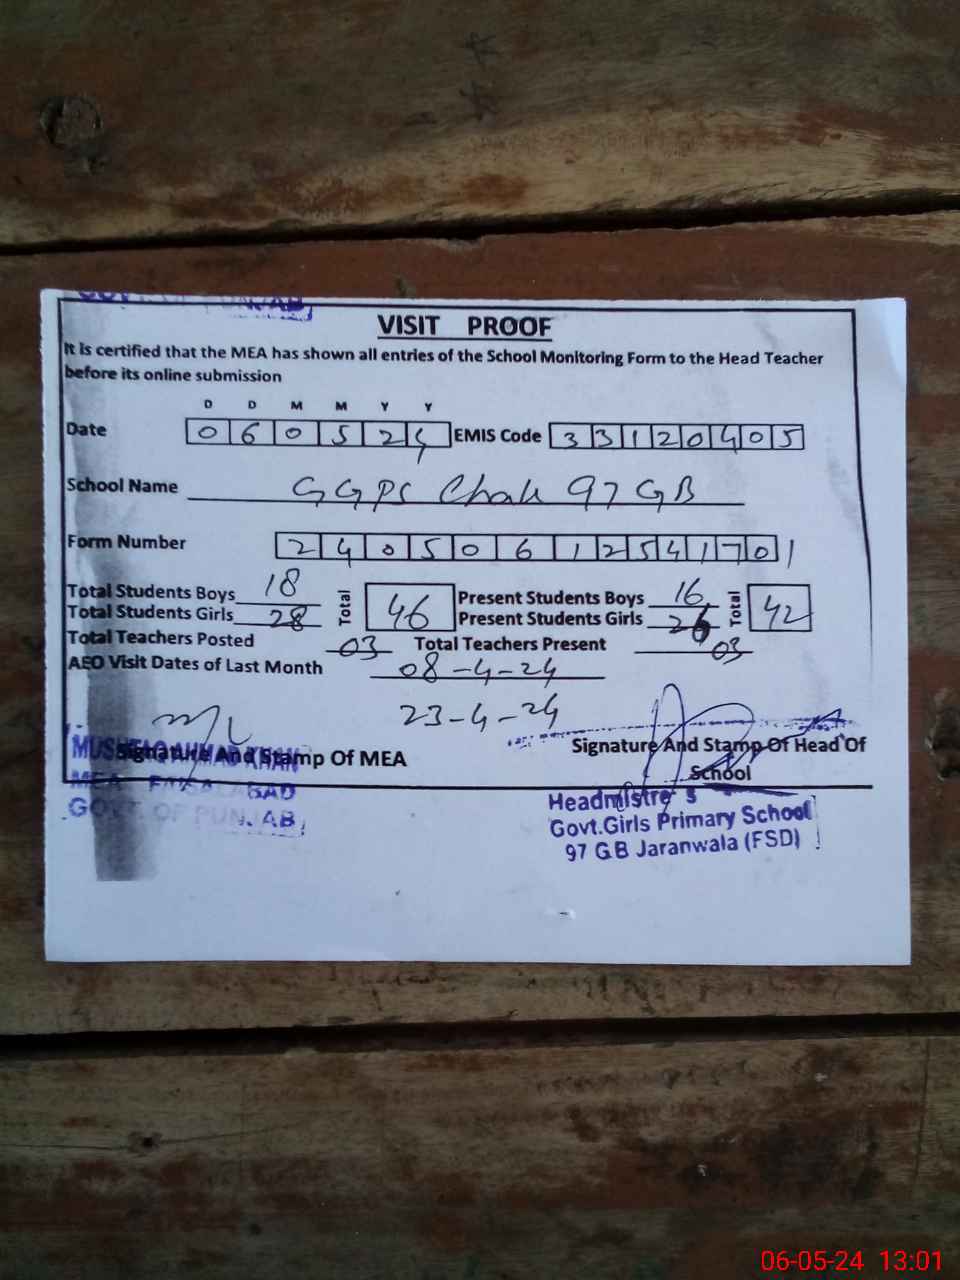 GOVT. OF PUNJAB
VISIT PROOF
It is certified that the MEA has shown all entries of the School Monitoring Form to the Head Teacher
before its online submission
D D M M Y Y
Date 0 6 0 5 2 4 EMIS Code 3 3 1 2 0 4 0 5
School Name GGPS Chak 97 GB
Form Number 2 4 0 5 0 6 1 2 5 4 1 7 0 1
Total Students Boys 18 Total 46 Present Students Boys 16 Total 42
Total Students Girls 28 Present Students Girls 26
Total Teachers Posted 03 Total Teachers Present 03
AEO Visit Dates of Last Month 08-4-24
23-4-24
Signature And Stamp Of MEA Signature And Stamp Of Head Of
School
MUSHTAQ AHMAD KHAN
MEA FAISALABAD
GOVT. OF PUNJAB
Headmistress
Govt.Girls Primary School
97 GB Jaranwala (FSD)
06-05-24 13:01